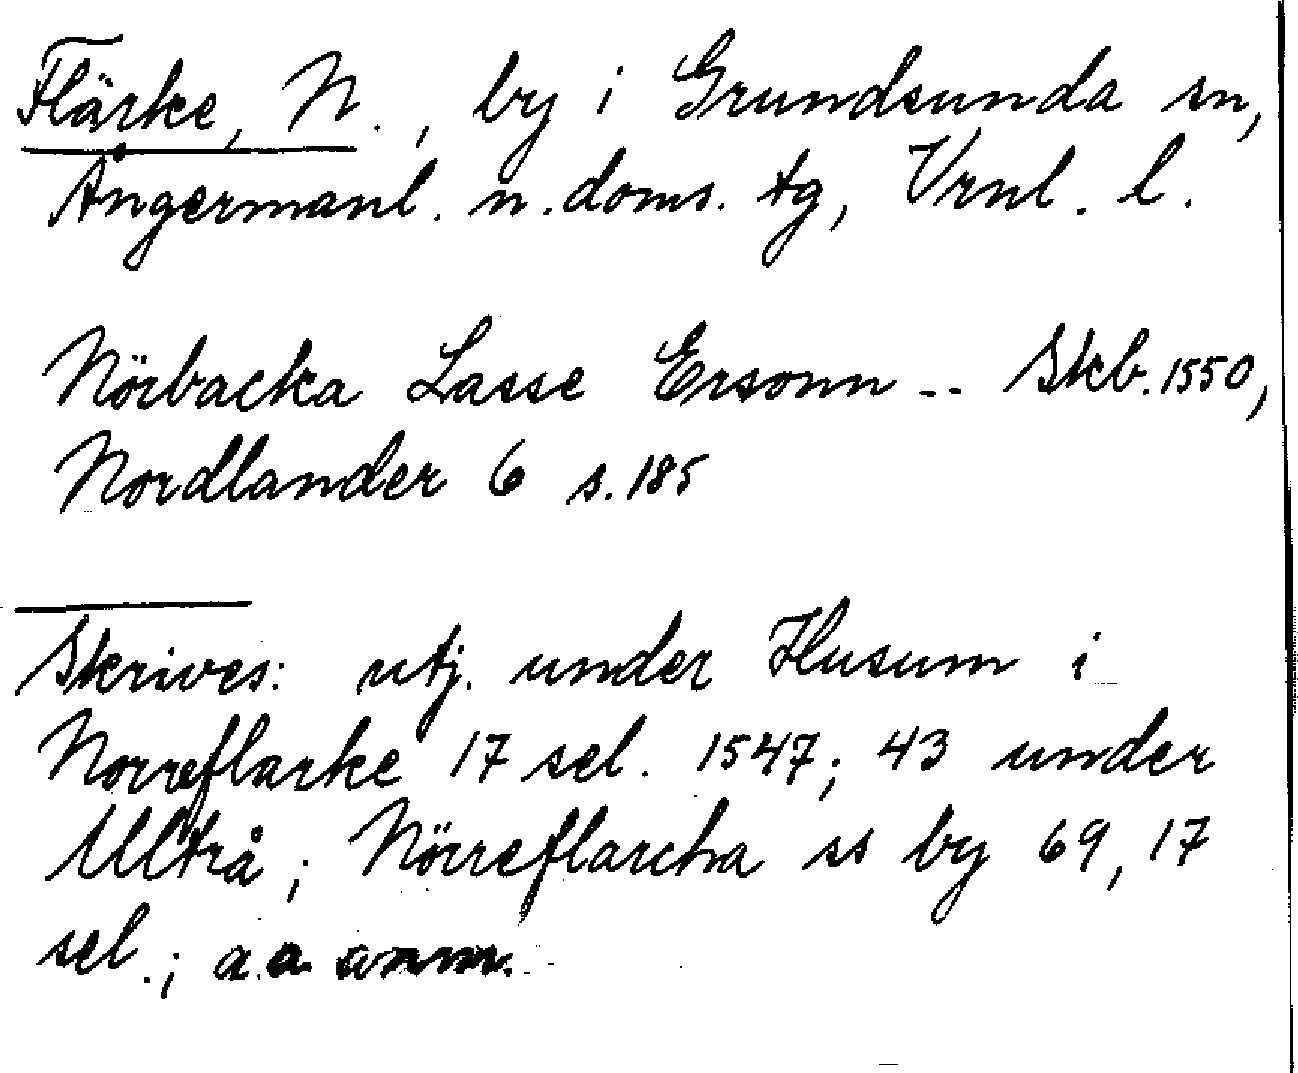 Flärke, N., by i Grundsunda sn,
Ångermanl. n. doms. tg, Vrnl. l.
Nörbacka Lasse Ersonn -- Skb. 1550,
Nordlander 6 s. 185
Skrives: utj. under Husum i
Norreflarke 17 sel. 1547; 43 under
Ulltrå; Nörreflarcka ss by 69, 17
sel.; a.a. anm.